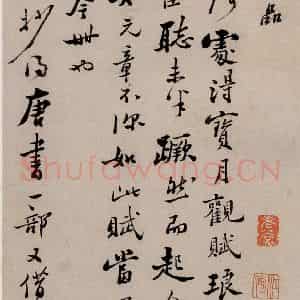 品
處得寶月觀賦琅
聽未半蹶然而起
元章不深如此賦當
今世也
抄得唐書一部又借
Shufawang.CN